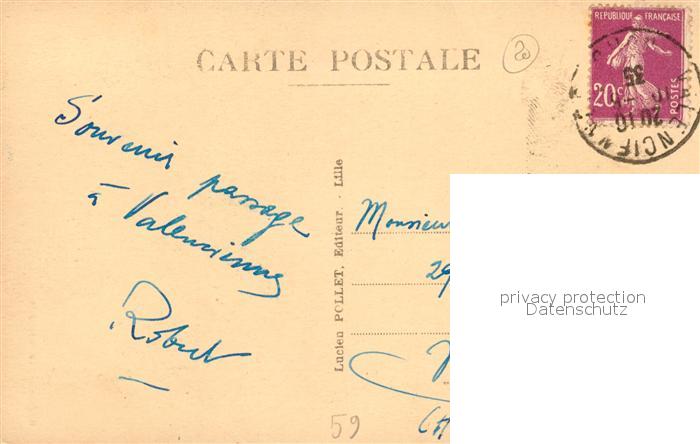 CARTE POSTALE
20
REPUBLIQUE FRANÇAISE
20c
POSTES
VALENCIENNES
20 10
35
Souvenir passage
à Valenciennes
Robert
Lucien POLLET, Editeur. - Lille
Monsieur
29
59
privacy protection
Datenschutz